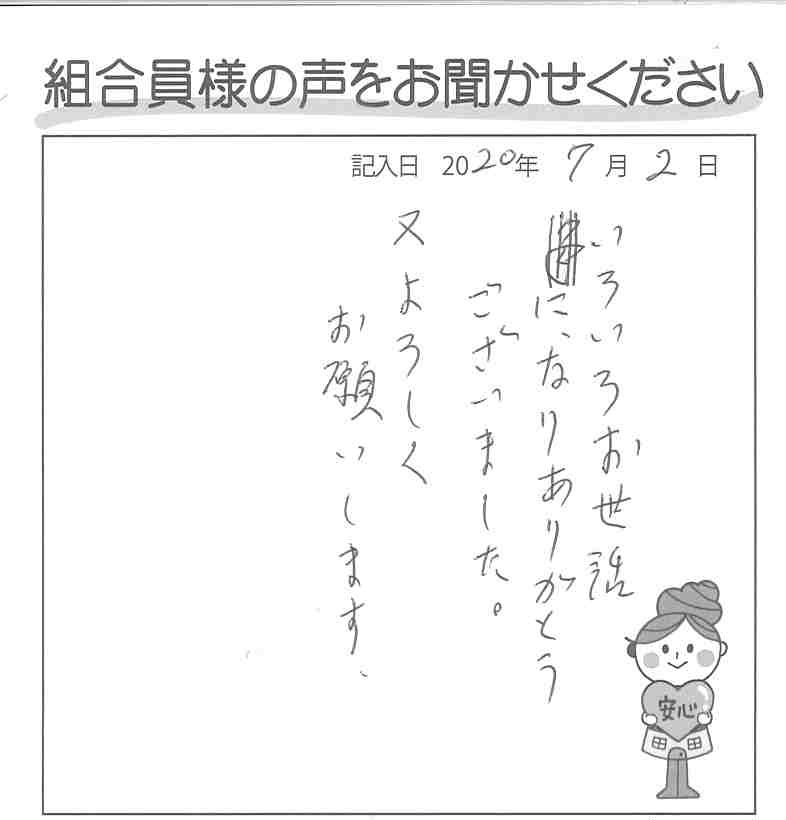 組合員様の声をお聞かせください
記入日 2020年 7月 2日
いろいろお世話
に、なりありがとう
ございました。
又よろしく
お願いします、
安心